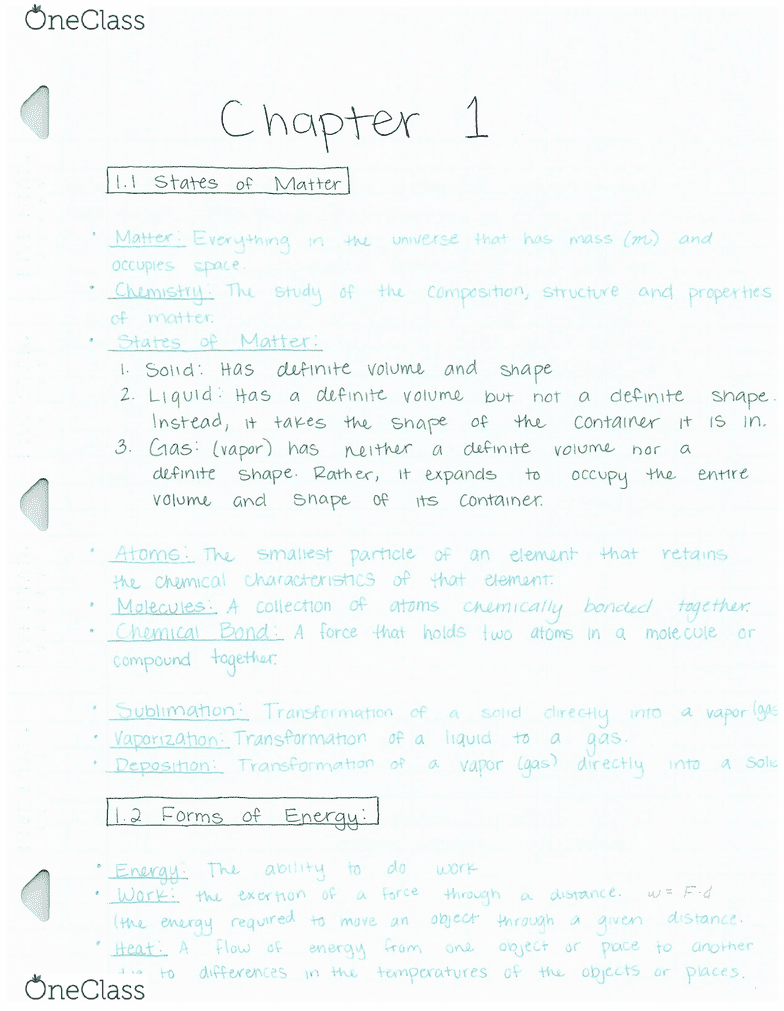 OneClass
Chapter 1
1.1 States of Matter
• Matter: Everything in the universe that has mass (m) and
occupies space.
• Chemistry: The study of the composition, structure and properties
of matter.
• States of Matter:
1. Solid: Has definite volume and shape
2. Liquid: Has a definite volume but not a definite shape.
Instead, it takes the shape of the container it is in.
3. Gas: (vapor) has neither a definite volume nor a
definite shape. Rather, it expands to occupy the entire
volume and shape of its container.
• Atoms: The smallest particle of an element that retains
the chemical characteristics of that element.
• Molecules: A collection of atoms chemically bonded together.
• Chemical Bond: A force that holds two atoms in a molecule or
compound together.
• Sublimation: Transformation of a solid directly into a vapor (gas
• Vaporization: Transformation of a liquid to a gas.
• Deposition: Transformation of a vapor (gas) directly into a
1.2 Forms of Energy:
• Energy: The ability to do work
• Work: the exertion of a force through a distance. w = F·d
(the energy required to move an object through a given distance.
• Heat: A flow of energy from one object or place to another
to differences in the temperatures of the objects or places.
OneClass